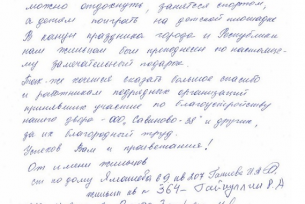 можно отдохнуть, заняться спортом,
а детям поиграть на детской площадке
В канун праздника города и Республики
нам жильцам был преподнесен по настоящему
замечательный подарок.
Так же хочется сказать большое спасибо
и работникам подрядных организаций
принявших участие по благоустройству
нашего двора - ООО "Савиново-ЖЕ" и другим,
да их благородный труд.
Успехов Вам и процветания!
От имени жильцов
ст по дому Ямашева 69 кв 107
жильцы кв 364 - Гайнуллин Р А